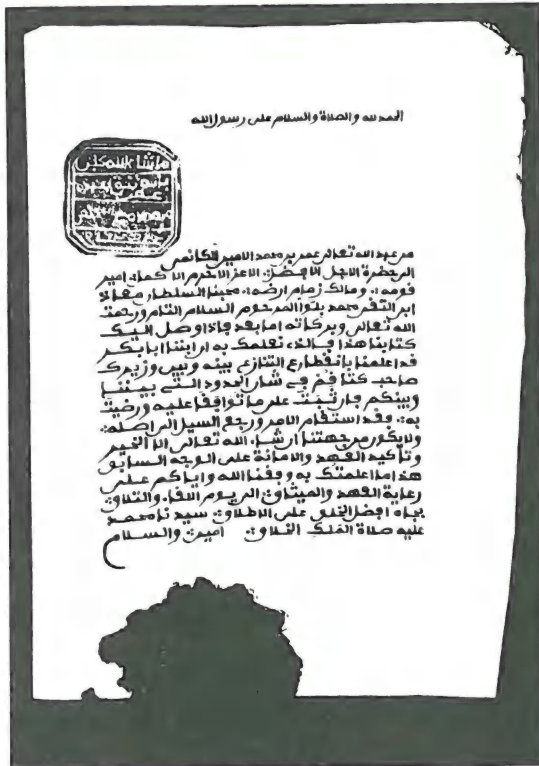 الحمد لله والصلاة والسلام على رسول الله
ما شا الله كبن
من عبد الله تعالى عمر بن محمد الامين الكانمي
الى حضرة الاجل الافضل الاعز الاكرم الاكمل امير
قومه وملك زمام ارضه محبنا السلطان معاذ
ابن الفقى محمد بلوا المرحوم السلام التام ورحمت
الله تعالى وبركاته اما بعد فاذا وصل اليك
كتابنا هذا فالذى نعلمك به ان ابننا ابا بكر
قد اعلمنا بانقطاع التنازع بينه وبين وزيرك
صاحب كتاقم في شان الحدود التي بيننا
وبينكم فان ثبت على ما توافقا عليه ورضيت
به فقد استقام الامر ورجع السيل الى اصله
ولا يكون من جهتنا ان شاء الله تعالى الا الخير
وتأكيد العهد والامانة على الوجه السابق
هذا ما اعلمتك به وفقنا الله واياكم على
رعاية العهد والميثاق الى يوم اللقاء والتلاق
بجاه افضل الخلق على الاطلاق سيدنا محمد
عليه صلاة الملك الخلاق امين والسلام